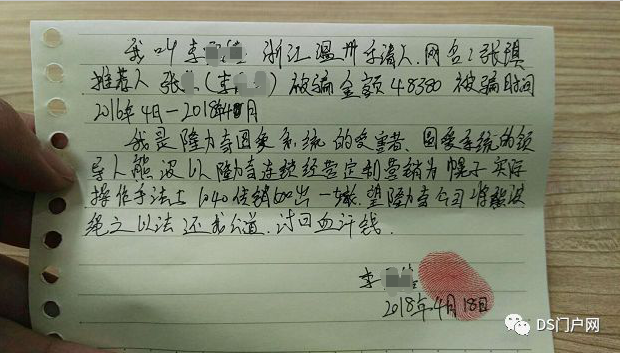 我叫 李 佳 浙江温州乐清人.网名:张琪
推荐人 张 (李 ) 被骗金额48380 被骗时间
2016年4月—2018年4月
我是隆力奇国爱系统的受害者.国爱系统的领
导人熊波以隆力奇连锁经营定制营销为幌子实际
操作手法与1040传销如出一辙.望隆力奇公司将熊波
绳之以法还我公道.讨回血汗钱.
李 佳
2018年.4月18日
DS门户网